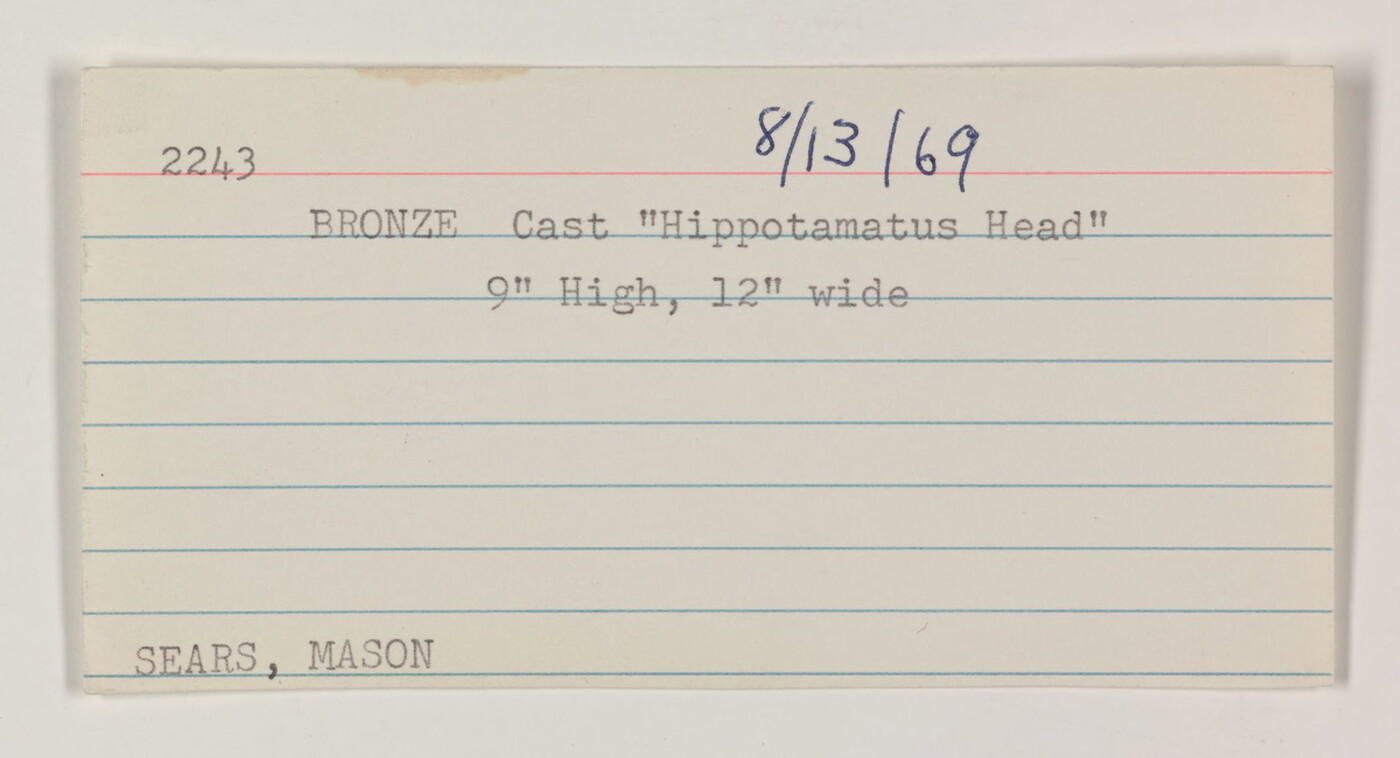 8/13/69
2243
BRONZE Cast "Hippotamatus Head"
9" High, 12" wide
SEARS, MASON